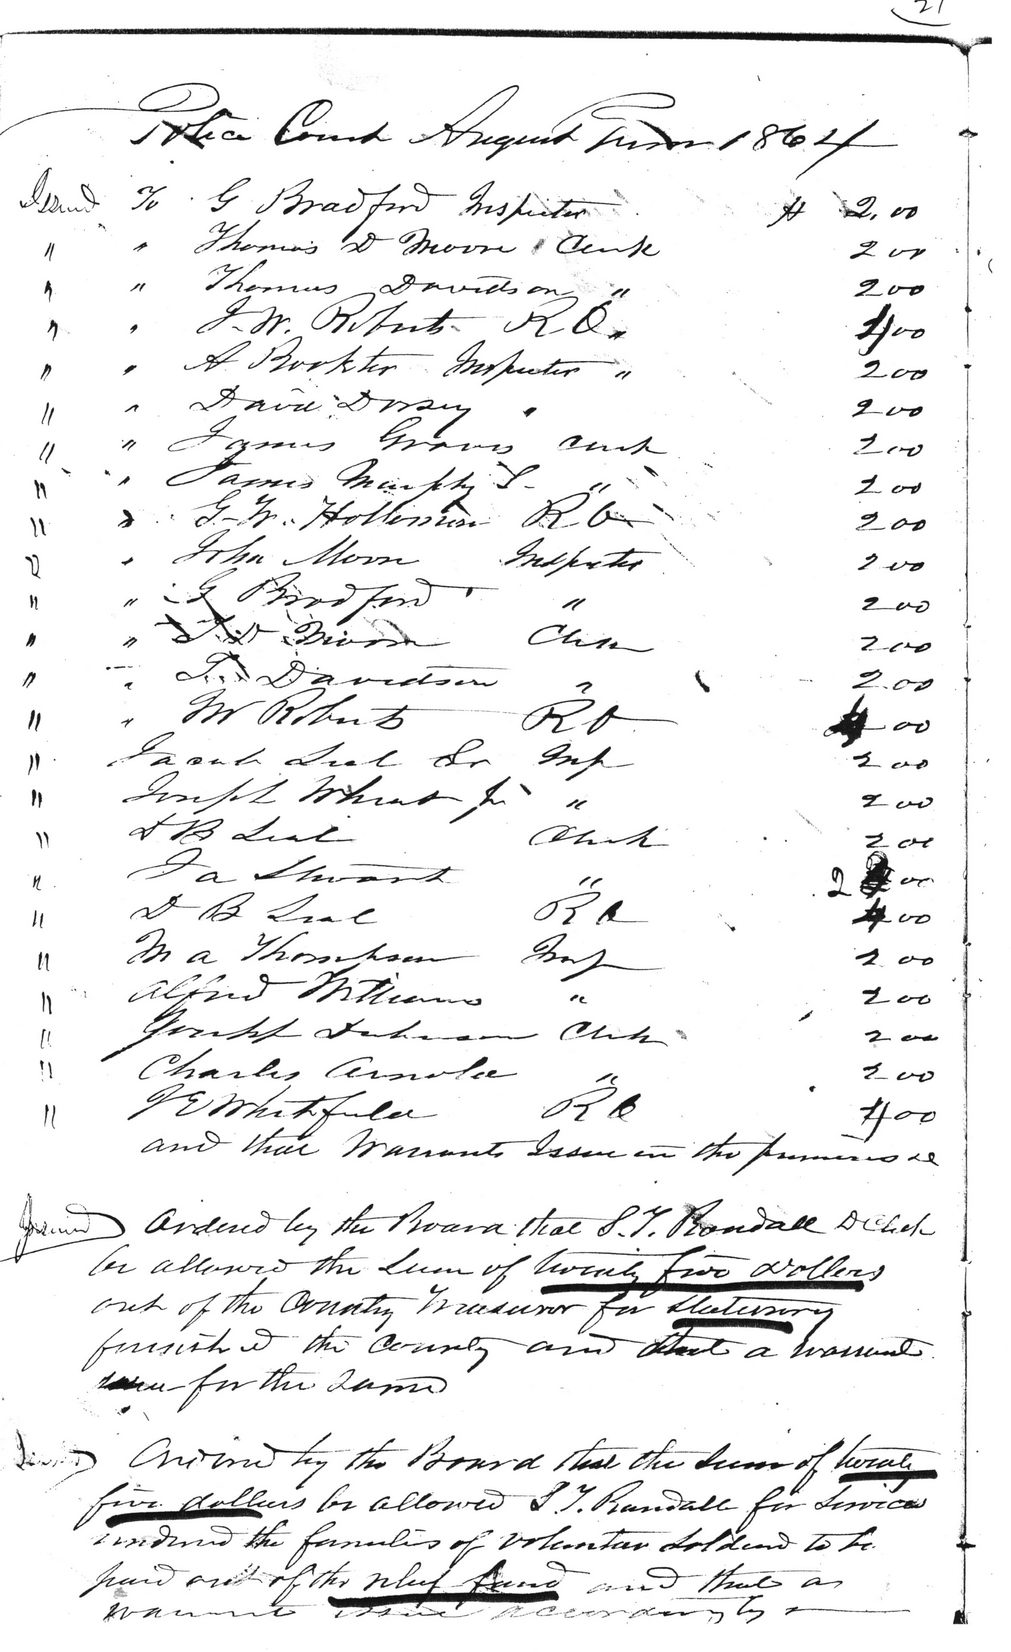 21
Police Court August Term 1864
Issued To G Bradford Inspector $ 2.00
" " Thomas D Moore Clerk 2 00
" " Thomas Davidson " 2 00
" " J. W. Roberts R O " 4 00
" " A Bookter Inspector " 2 00
" " David Dorsey " 2 00
" " James Graves Clerk 2 00
" " James Murphy S. " 2 00
" " G. W. Holleman R O 2 00
" " John Moore Inspector 2 00
" " G Bradford " 2 00
" " T. D. Moore Clerk 2 00
" " T. Davidson " 2 00
" " W Roberts R O 4 00
" Jacob Leal Sr Insp 2 00
" Joseph Wheat Jr " 2 00
" D B Leal Clerk 2 00
" J a Stewart " 2 00
" D B Leal R O 4 00
" M a Thompson Insp 2 00
" Alfred Williams " 2 00
" Joseph Clerk 2 00
" Charles Arnold " 2 00
" J E Whitfield R O 4 00
and that Warrants Issue in the premises
Issued Ordered by the Board that S. T. Randall D Clerk
be allowed the Sum of twenty five dollars
out of the County Treasuror for Stationary
furnished the County and that a warrant
issue for the same
Issued Ordered by the Board that the Sum of twenty
five dollars be allowed S. T. Randall for Service
rendered the families of volunteer Soldiers to be
paid out of the relief fund and that a
warrant issue accordingly